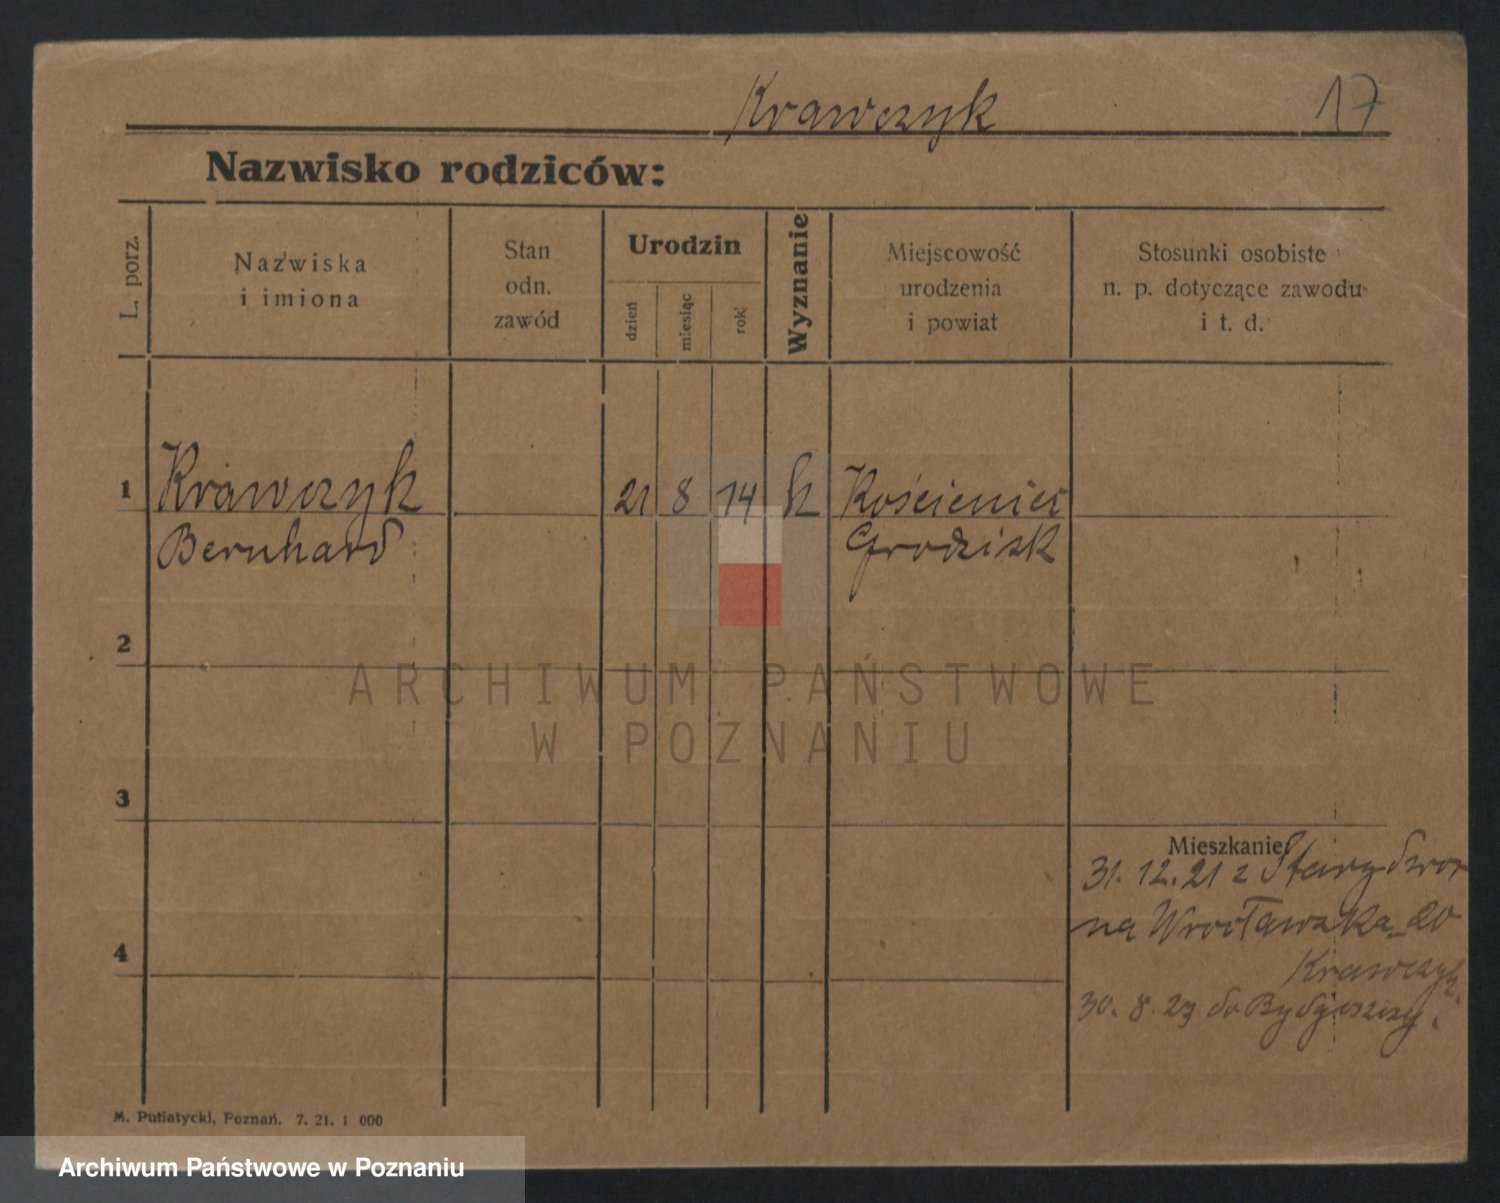 Krawczyk 17
Nazwisko rodziców:
L. porz.
Nazwiska
i imiona
Stan
odn.
zawód
Urodzin
dzień
miesiąc
rok
Wyznanie
Miejscowość
urodzenia
i powiat
Stosunki osobiste
n. p. dotyczące zawodu
i t. d.
1 Krawczyk 21 8 14 k Kościeniec
Bernhard Grodzisk
2
ARCHIWUM PAŃSTWOWE
W POZNANIU
3
Mieszkanie:
31. 12. 21 z Starydwor
na Wrocławska 20
4
Krawczyk
30. 8. 23 do Bydgoszczy.
M. Putiatycki, Poznań. 7. 21. 1 000
Archiwum Państwowe w Poznaniu